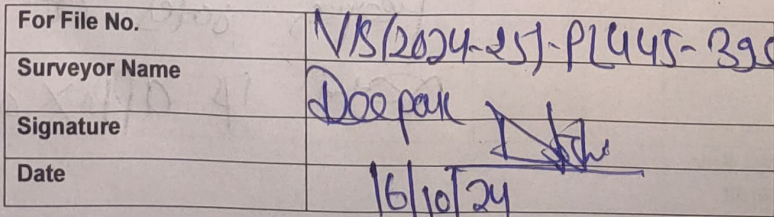 For File No. VIS(2024-25)-PL445-
Surveyor Name Deepak
Signature
Date 16/10/24